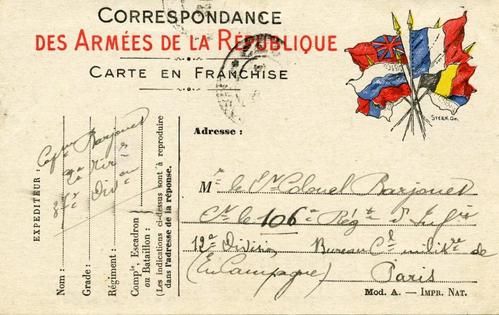 CORRESPONDANCE
DES ARMÉES DE LA RÉPUBLIQUE
CARTE EN FRANCHISE
STERN. Gr.
EXPÉDITEUR :
Nom :
Grade :
Régiment :
Comp^ie, Escadron
ou Bataillon :
(Les indications ci-dessus sont à reproduire
dans l'adresse de la réponse.
Cap^ne Barjonet
Adresse :
M^r le L^t Colonel Barjonet
C^t le 106^e Rég^t d'Inf^ie
12^e Division Bureau C^al milit^re de
(En Campagne) Paris
Mod. A. — IMPR. NAT.